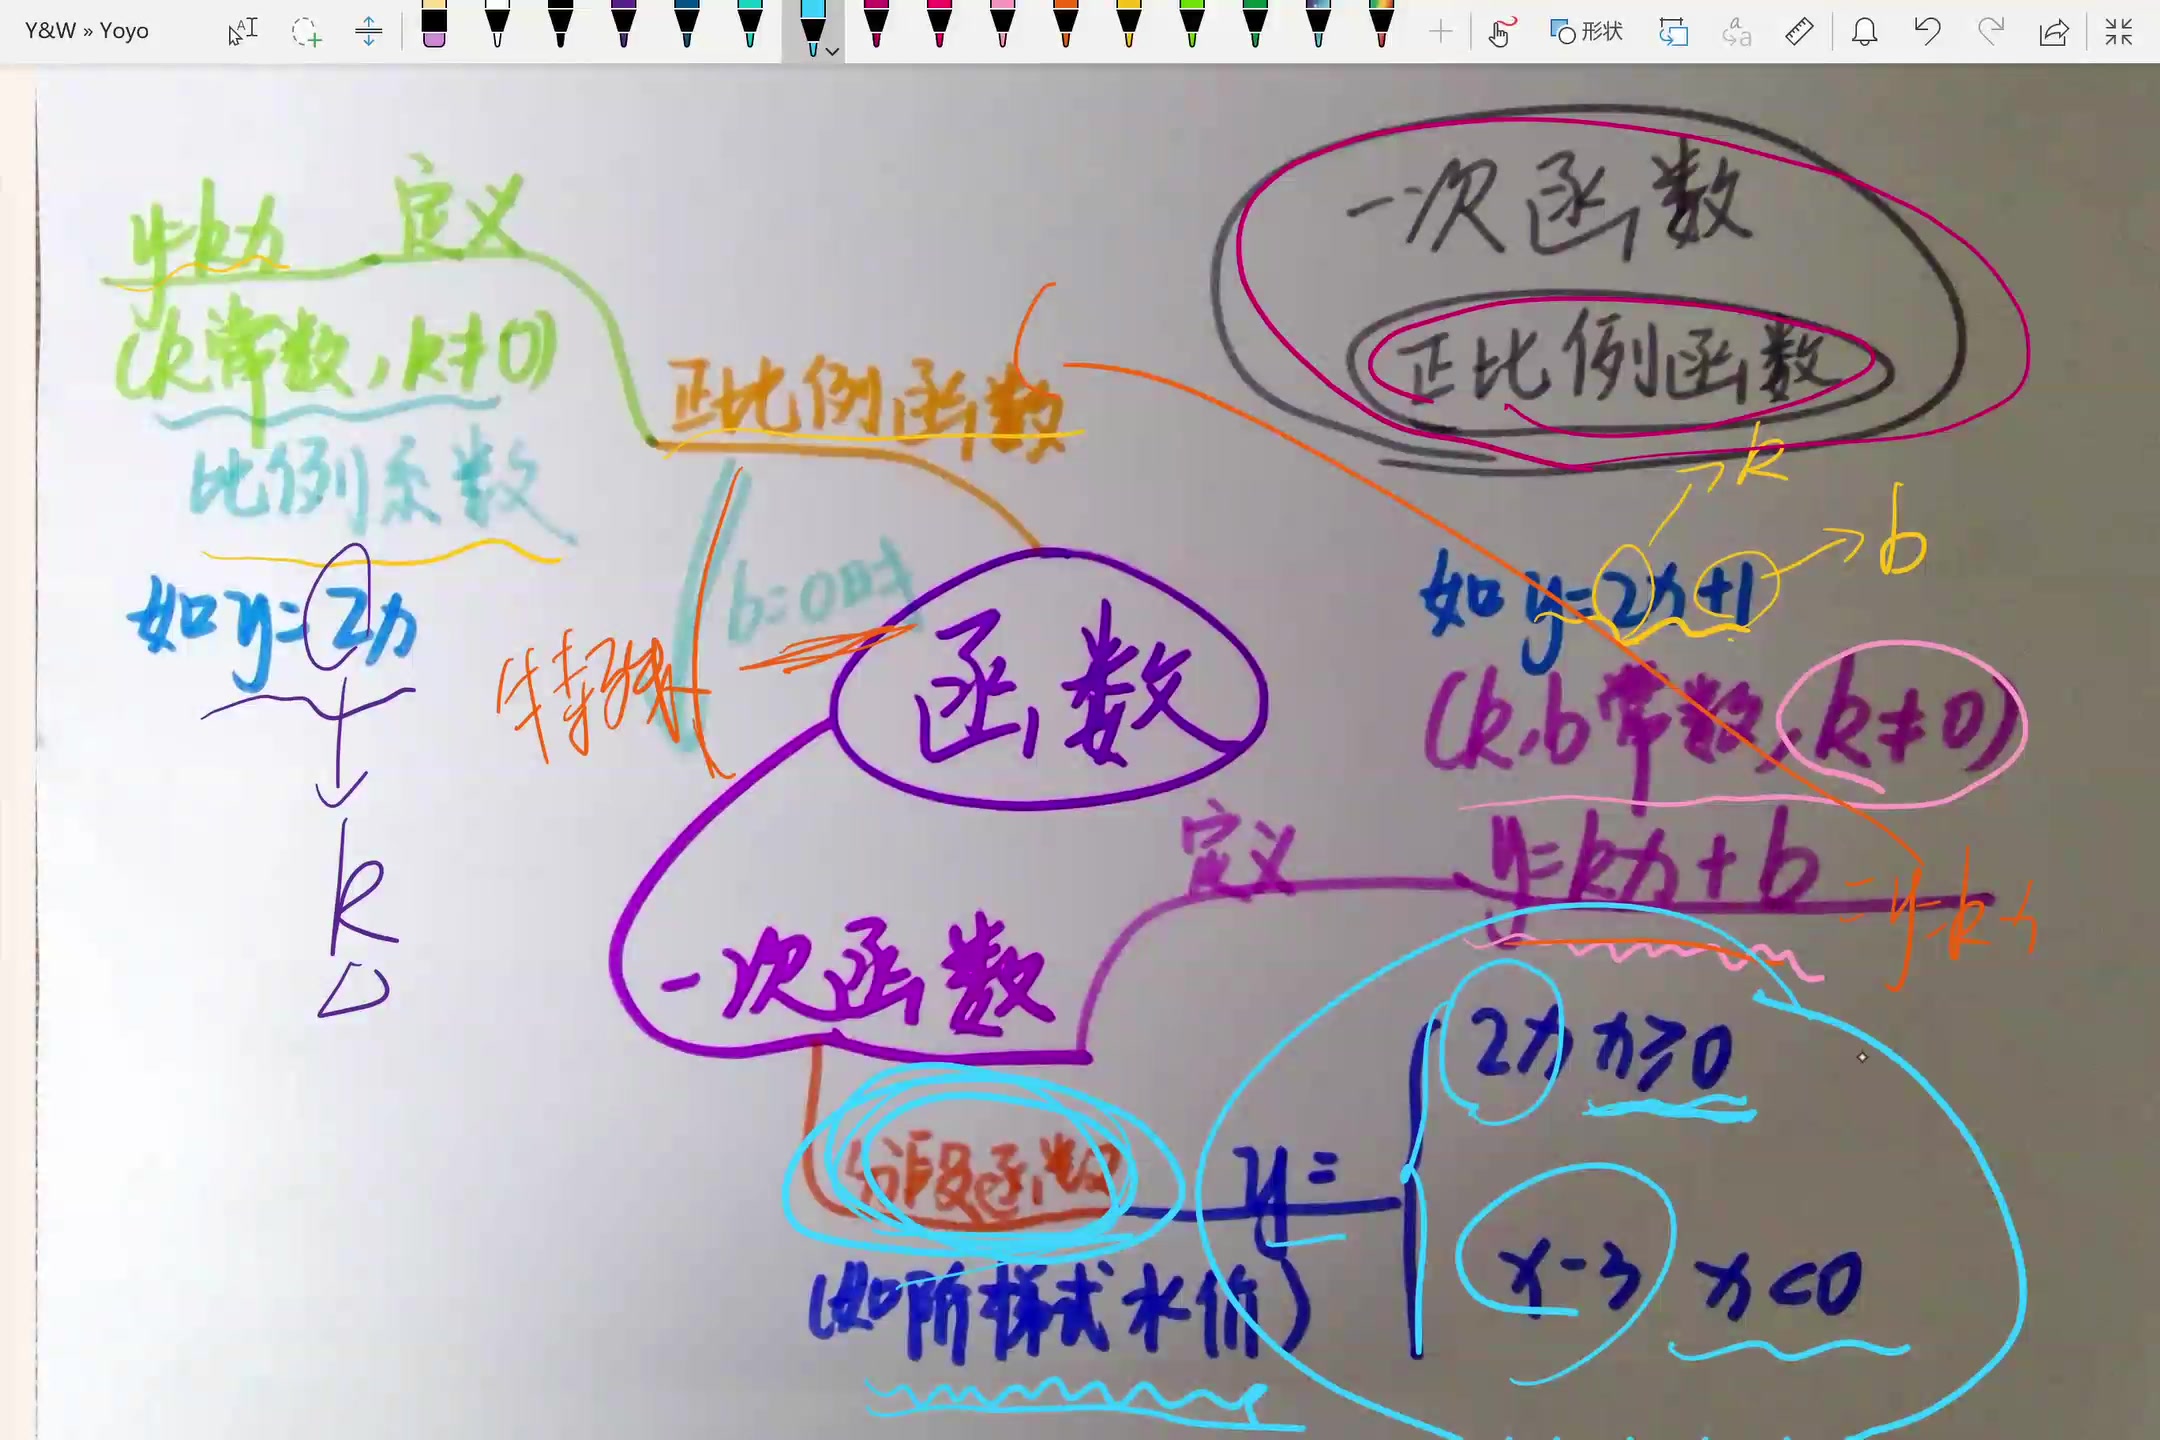 Y&W » Yoyo
形状
一次函数
正比例函数
定义
y=kx
(k常数,k≠0)
比例系数
如y=2x
k
正比例函数
b=0时
特殊
函数
k
b
如y=2x+1
(k,b常数,k≠0)
定义
y=kx+b
=y=kx
一次函数
分段函数
(如阶梯式水价)
y=
2x x≥0
x-3 x<0